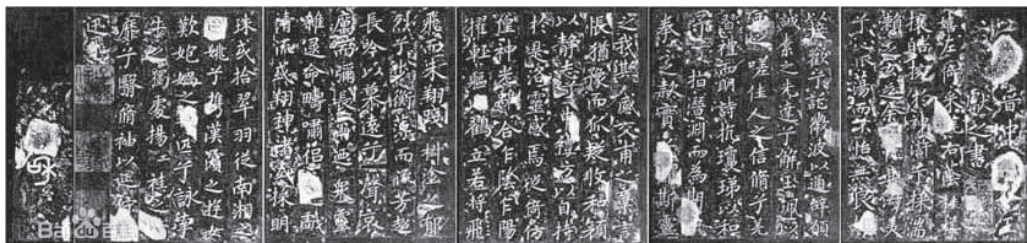 晉中
獻之書
左倚采旄右蔭桂旗
攘皓捥於神滸兮采湍
瀨之玄芝余情悅其淑美
兮心振蕩而不怡無良
接歡兮託微波以通辭願
誠素之先達兮解玉珮以
要之嗟佳人之信脩兮羌
習禮而明詩抗瓊珶以和
予兮指潛淵而為期
拳之款實兮 斯靈
之我欺感交甫之棄言
悵猶豫而狐疑收和顏
以靜志兮申禮防以自持
於是洛靈感焉徙倚仿
偟神光離合乍陰乍陽
擢輕軀以鶴立若將飛
飛而未翔踐椒塗之郁
烈兮步衡薄而流芳超
長吟以慕遠兮聲哀
厲而彌長爾迺衆靈
雜遝命疇嘯侶或戲
清流或翔神渚或采明
珠或拾翠羽從南湘之
二姚兮攜漢濱之遊女
歎匏媧之無匹兮詠牽
牛之獨處揚 袿之
靡兮翳脩袖以延佇
迅
Baidu百科